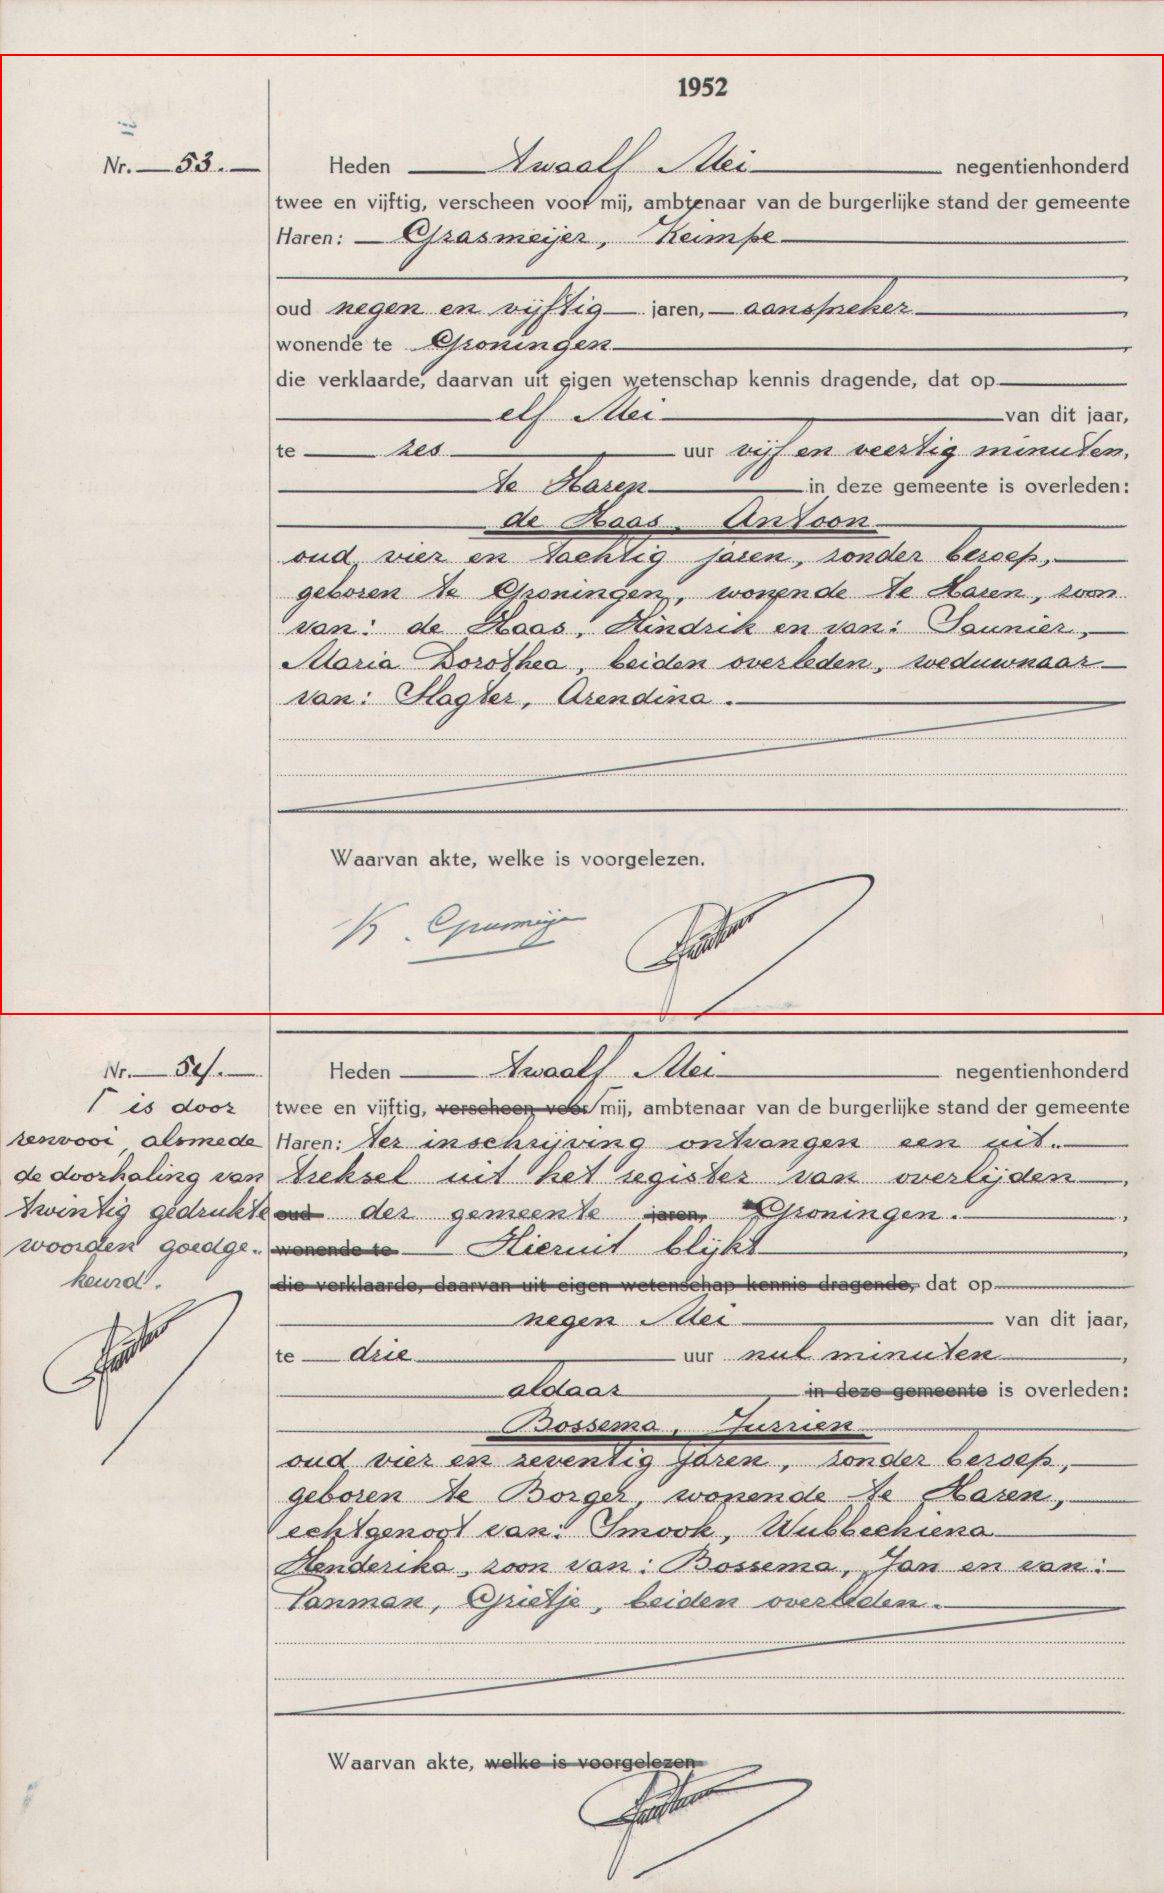 1952
Nr. 53. Heden twaalf Mei negentienhonderd
twee en vijftig, verscheen voor mij, ambtenaar van de burgerlijke stand der gemeente
Haren: Grasmeijer, Keimpe
oud negen en vijftig jaren, aanspreker
wonende te Groningen
die verklaarde, daarvan uit eigen wetenschap kennis dragende, dat op
elf Mei van dit jaar,
te zes uur vijf en veertig minuten,
te Haren in deze gemeente is overleden:
de Haas, Antoon
oud vier en tachtig jaren, zonder beroep,
geboren te Groningen, wonende te Haren, zoon
van: de Haas, Hindrik en van: Saunier,
Maria Dorothea, beiden overleden, weduwnaar
van: Slagter, Arendina.
Waarvan akte, welke is voorgelezen.
K. Grasmeijer
Nr. 54. Heden twaalf Mei negentienhonderd
twee en vijftig, verscheen voor ⌈ mij, ambtenaar van de burgerlijke stand der gemeente
Haren: ter inschrijving ontvangen een uit-
treksel uit het register van overlijden
oud der gemeente jaren, Groningen.
wonende te Hieruit blijkt
die verklaarde, daarvan uit eigen wetenschap kennis dragende, dat op
negen Mei van dit jaar,
te drie uur nul minuten,
aldaar in deze gemeente is overleden:
Bossema, Jurrien
oud vier en zeventig jaren, zonder beroep,
geboren te Borger, wonende te Haren,
echtgenoot van: Smook, Wubbechiena
Henderika, zoon van: Bossema, Jan en van:
Panman, Grietje, beiden overleden.
Waarvan akte, welke is voorgelezen
⌈ is door
renvooi, alsmede
de doorhaling van
twintig gedrukte
woorden goedge-
keurd.